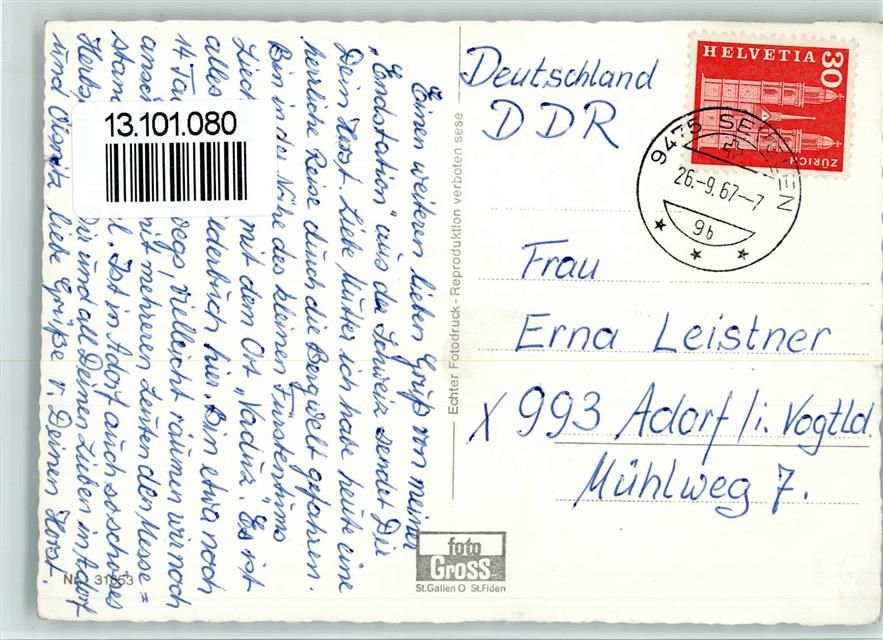 Einen weiteren lieben Gruß von meiner
"Endstation" aus der Schweiz sendet Dir
Dein Horst. Liebe Mutter ich habe heute eine
herrliche Reise durch die Bergwelt gefahren.
Bin in der Nähe des kleinen Fürstentums
Liech mit dem Ort "Vaduz". Es ist
alles derbuch hier. Bin etwa noch
14 Ta wegs vielleicht räumen wir noch
ansch mit mehreren Leuten den Messe=
stand l. Ist in Adorf auch so schönes
Herbs Dir und all Deinen Lieben in Adorf
und liebe Grüße v. Deinen Horst
Nr. 31653
13.101.080
Echter Fotodruck - Reproduktion verboten sese
foto
Gross
St.Gallen O St.Fiden
Deutschland
DDR
HELVETIA
30
ZÜRICH
9475 SEVELEN
26.-9.67-7
9b
Frau
Erna Leistner
X 993 Adorf/i. Vogtld.
Mühlweg 7.